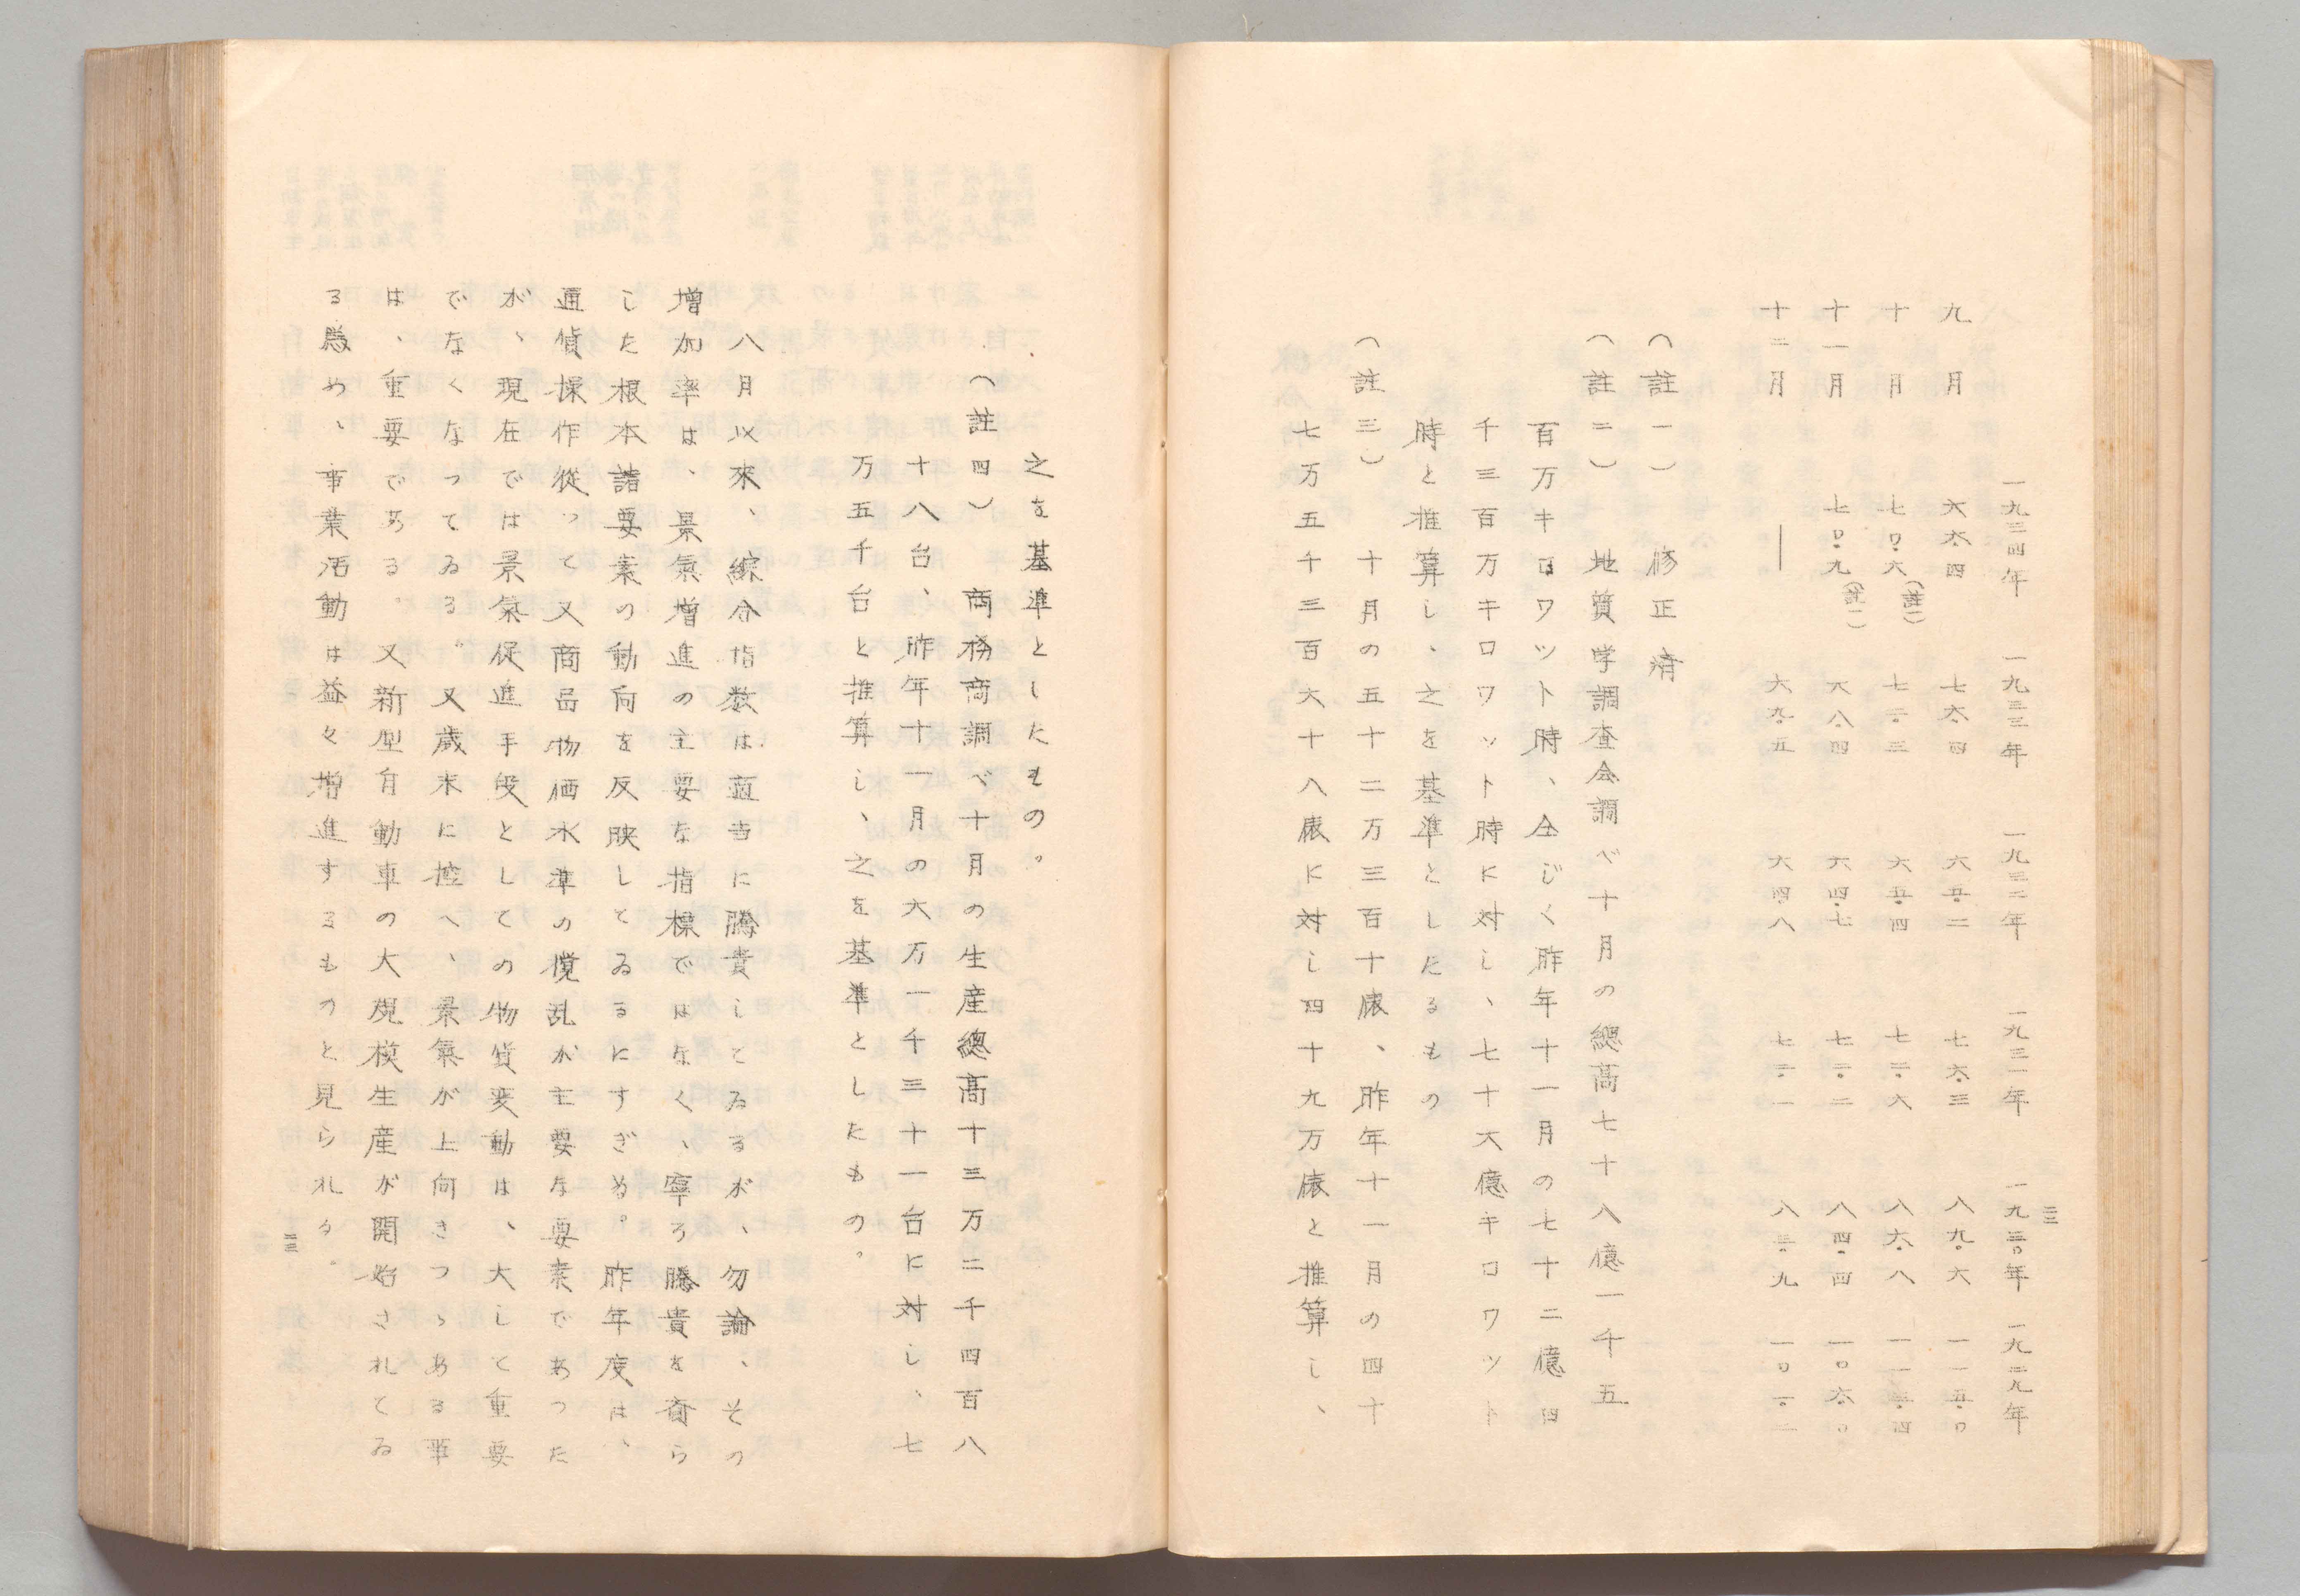 二二
一九三四年 一九三三年 一九三二年 一九三一年 一九三〇年 一九二九年
九月 六六・四 七六・四 六五・二 七六・三 八九・六 一一五・〇
十月 七〇・六(註一) 七二・三 六五・四 七二・六 八六・八 一一三・四
十一月 七〇・九(註一) 六八・四 六四・七 七二・二 八四・四 一〇六・〇
十二月 ― 六九・五 六四・八 七二・一 八三・九 一〇一・二
(註一) 修正済
(註二) 地質学調査会調べ十月の總高七十八億一千五
百万キロワツト時、仝じく昨年十一月の七十二億四
千三百万キロワット時に対し、七十六億キロワット
時と推算し、之を基準としたるもの
(註三) 十月の五十二万三百十俵、昨年十一月の四十
七万五千三百六十八俵に対し四十九万俵と推算し、
之を基準としたもの。
(註四) 商務商調べ十月の生産總高十三万二千四百八
十八台、昨年十一月の六万一千三十一台に対し、七
万五千台と推算し、之を基準としたもの。
八月以來、綜合指数は適当に騰貴してゐるが、勿論、その
増加率は、景氣増進の主要な指標ではなく、寧ろ騰貴を齎ら
した根本諸要素の動向を反映してゐるにすぎぬ。昨年度は、
通貨操作從って又商品物価水準の攪乱が主要な要素であった
が、現在では景氣促進手段としての物貨変動は、大して重要
でなくなってゐる。又歳末に控へ、景氣が上向きつゝある事
は、重要である。又新型自動車の大規模生産が開始されてゐ
る爲め、事業活動は益々増進するものと見られる。
二三